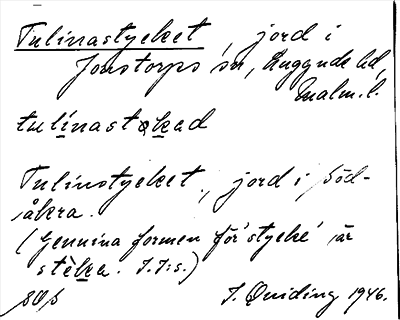 Tulinastycket, jord i
Jonstorps sn, Luggude hd,
Malm. l.
tulinastøkad
Tulinstycket, jord i Söd-
åkra.
(Genuina formen för 'stycke' är
stèka. I. I:s.)
I. Quiding 1946.